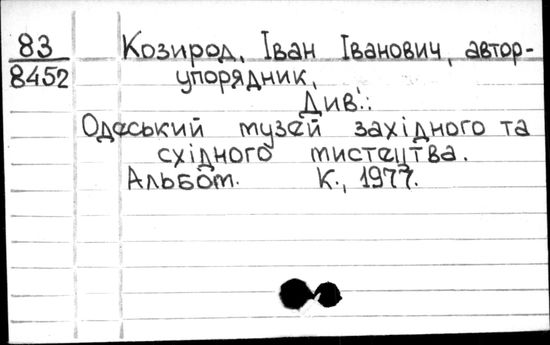 83
8452
Козирод, Іван Іванович, автор-
упорядник,
Див.:
Одеський музей західного та
східного мистецтва.
Альбом. К., 1977.